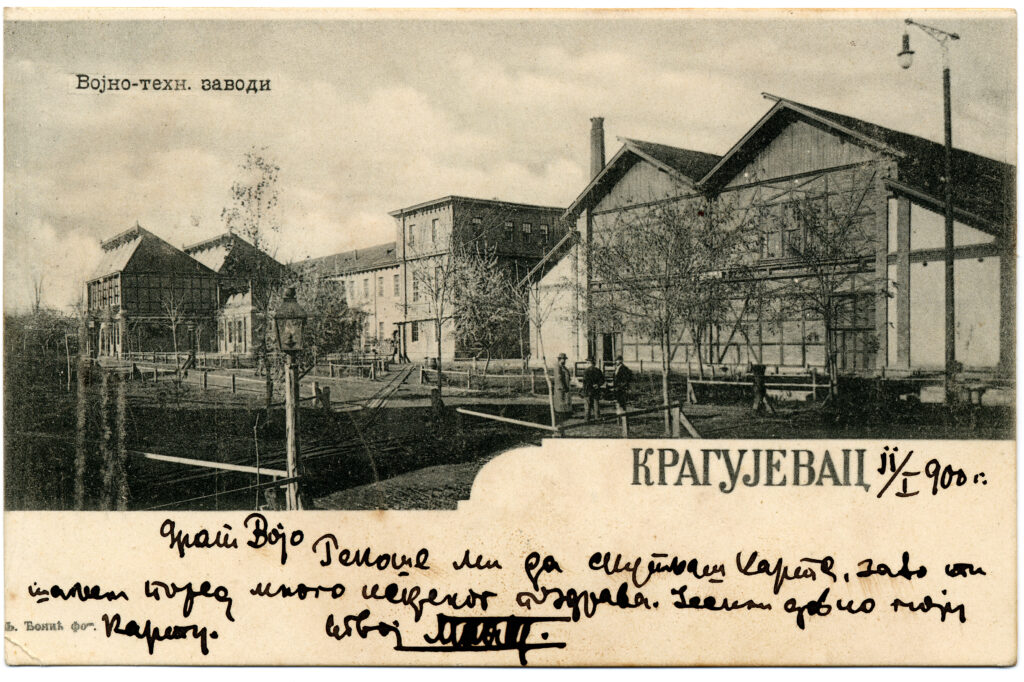 Војно-техн. заводи
КРАГУЈЕВАЦ 11/I 900 г.
Драги Војо
Рекоше ми да скупљаш карте, зато ти
шаљем поред много поздрава. Јеси ли добио моју
карту. Твој
Ђонић фот.